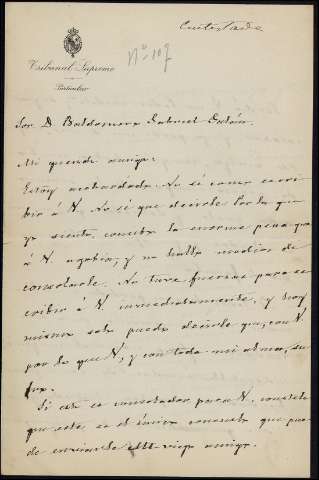 Contestada
Nº 107
Tribunal Supremo
Particular
Sor D. Baldomero Gabriel Galán.
Mi querido amigo:
Estoy acobardado. No sé como escri-
birle á V. No sé que decirle. Por lo que
yo siento, concibo la enorme pena que
á V. agobia, y no hallo medios de
consolarle. No tuve fuerzas para es-
cribir á V. inmediatamente, y hoy
mismo solo puedo decirle que, con V.
por lo que V., y con toda mi alma, su-
fro.
Si esto es consolador para V., conste le
que este es el único consuelo que pue-
de enviarle este viejo amigo.